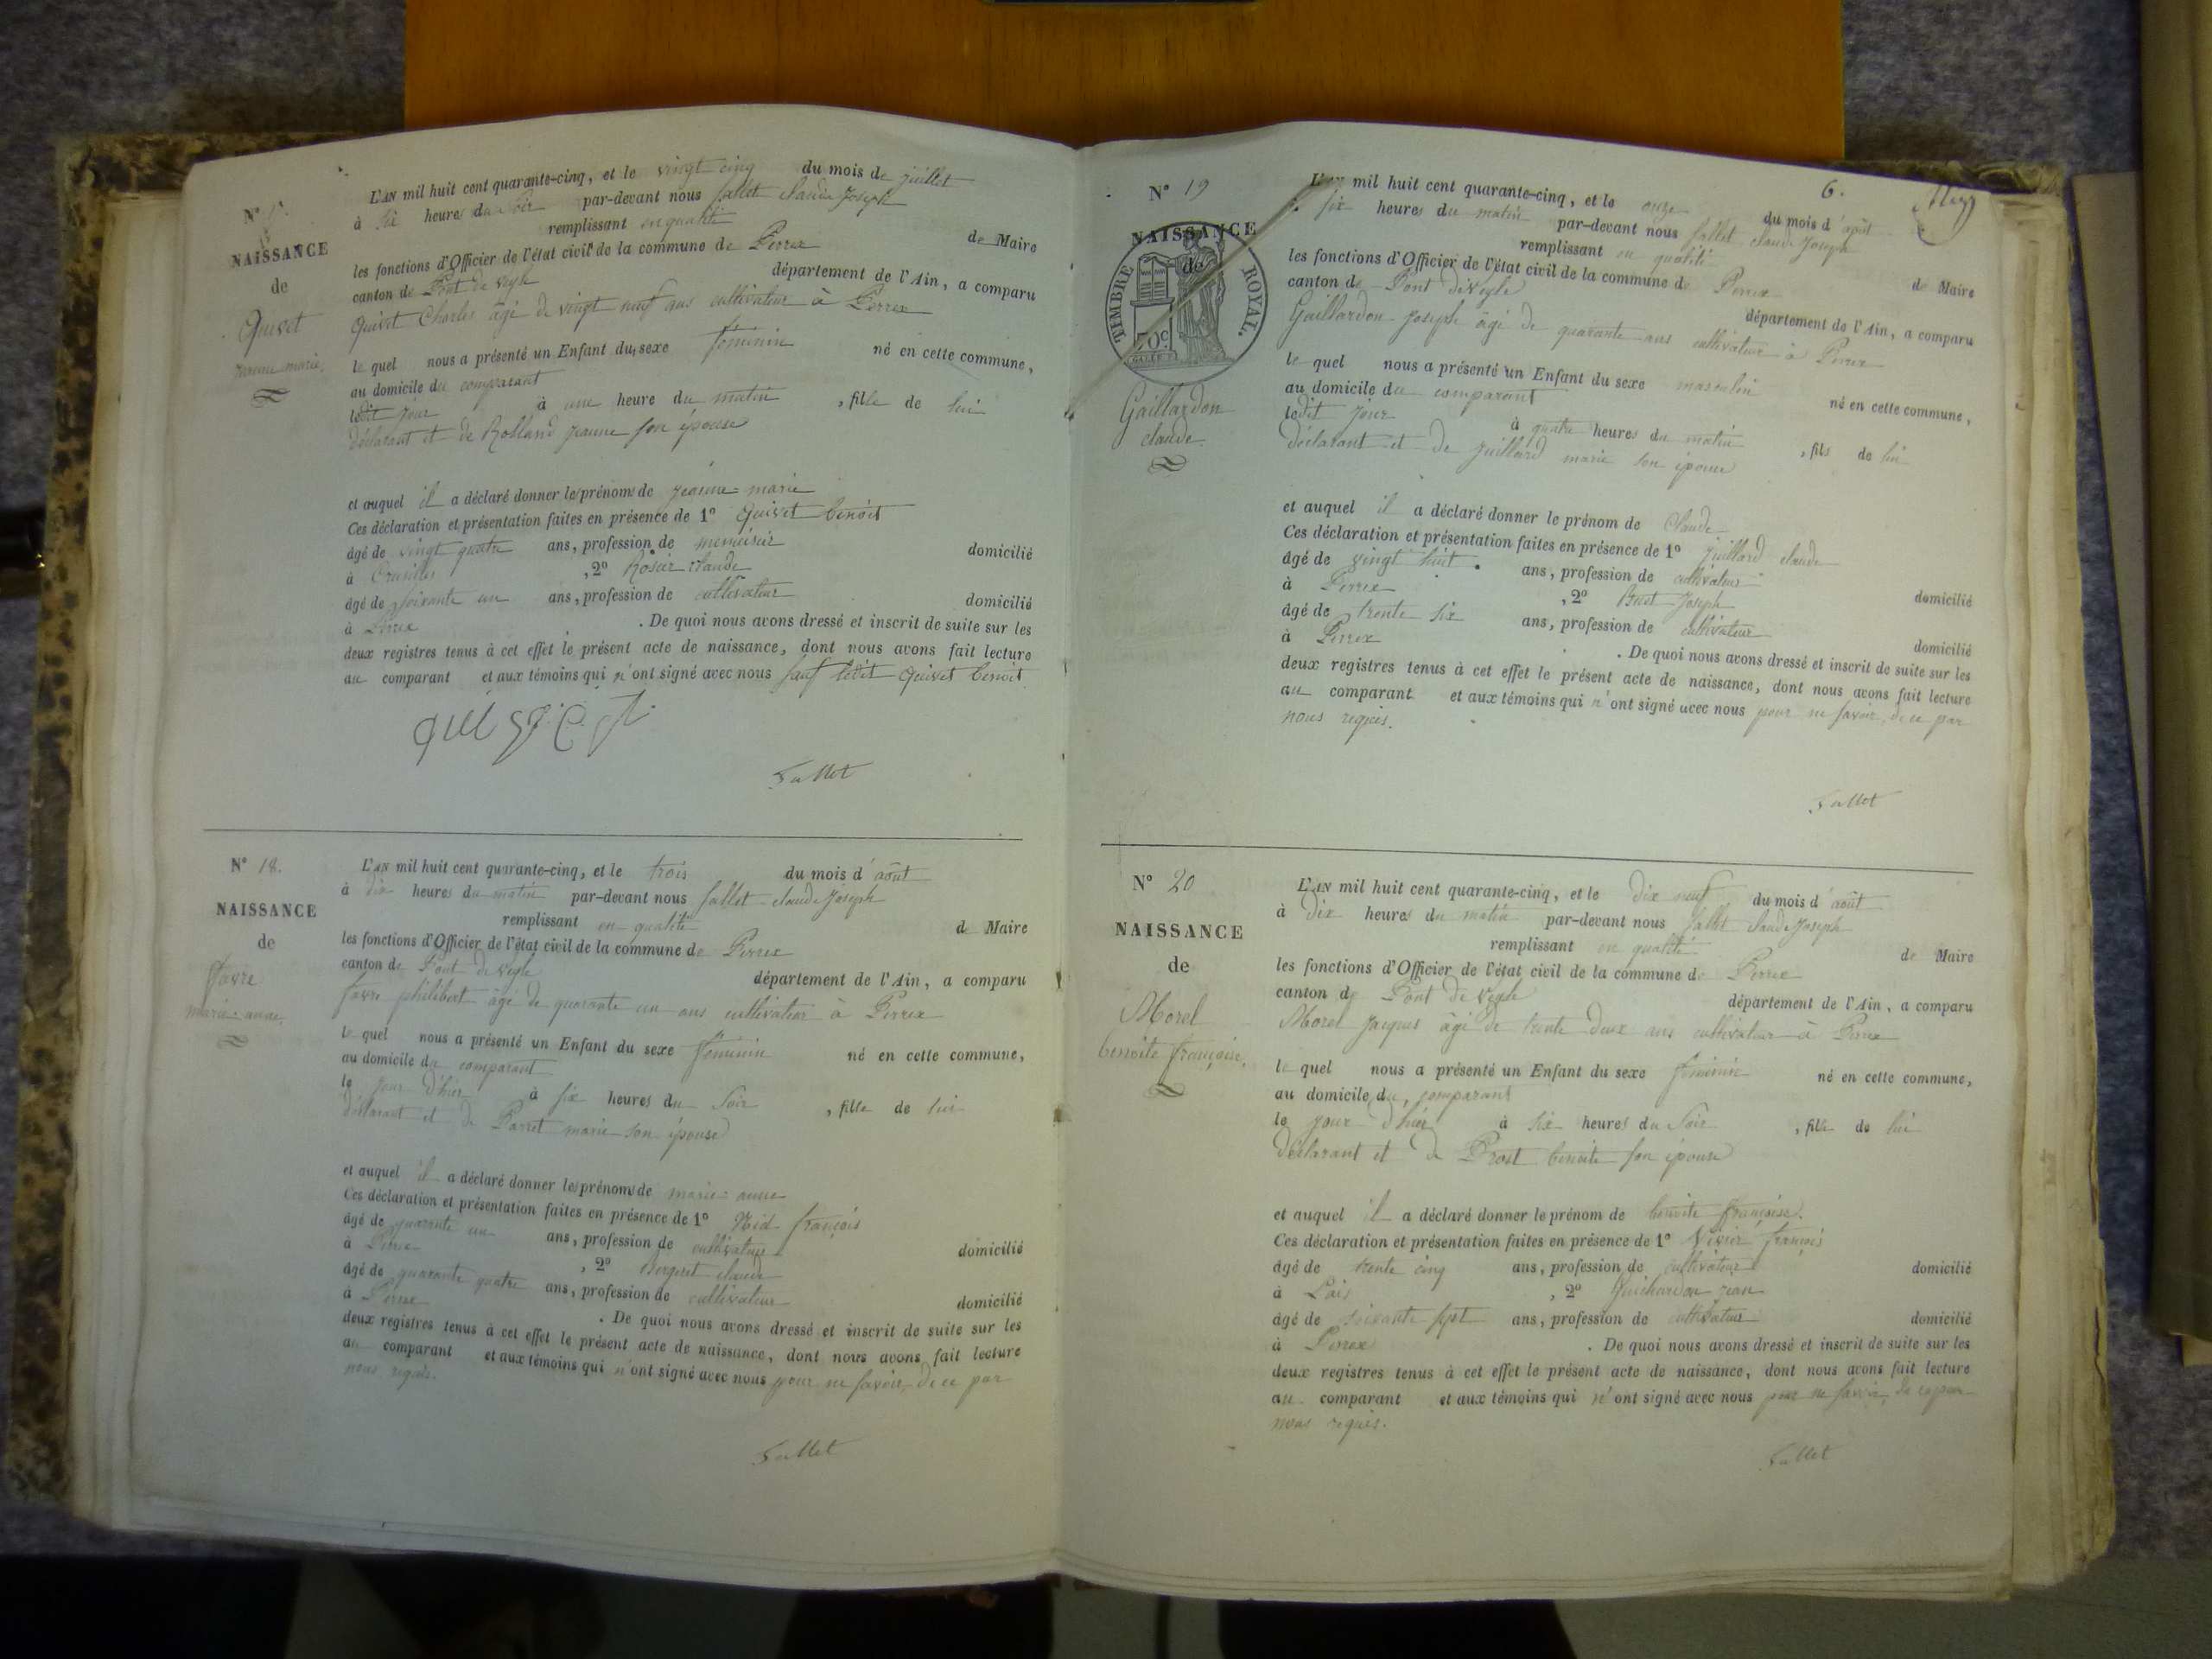 N° 17.
NAISSANCE
de
Quivet
jeanne marie.
L'AN mil huit cent quarante-cinq, et le vingt cinq du mois de juillet
à six heures du soir par-devant nous fallet claude Joseph
remplissant en qualité de Maire
les fonctions d'Officier de l'état civil de la commune de Perrex
canton de Pont de veyle département de l'Ain, a comparu
Quivet Charles âgé de vingt neuf ans cultivateur à Perrex
le quel nous a présenté un Enfant du sexe féminin né en cette commune,
au domicile du comparant
ledit jour à une heure du matin, fille de lui
déclarant et de Rolland jeanne son épouse
et auquel il a déclaré donner les prénoms de jeanne-marie
Ces déclaration et présentation faites en présence de 1° Quivet benoit
âgé de vingt quatre ans, profession de menuisier domicilié
à Crusilles, 2° Rosier claude
âgé de soixante un ans, profession de cultivateur domicilié
à Perrex. De quoi nous avons dressé et inscrit de suite sur les
deux registres tenus à cet effet le présent acte de naissance, dont nous avons fait lecture
au comparant et aux témoins qui n'ont signé avec nous sauf ledit Quivet benoit
fallet
N° 18.
NAISSANCE
de
favre
marie-anne.
L'AN mil huit cent quarante-cinq, et le trois du mois d'août
à dix heures du matin par-devant nous fallet claude Joseph
remplissant en qualité de Maire
les fonctions d'Officier de l'état civil de la commune de Perrex
canton de Pont de veyle département de l'Ain, a comparu
favre philibert âgé de quarante un ans cultivateur à Perrex
le quel nous a présenté un Enfant du sexe féminin né en cette commune,
au domicile du comparant
le jour d'hier à six heures du soir, fille de lui
déclarant et de Parret marie son épouse
et auquel il a déclaré donner les prénoms de marie-anne
Ces déclaration et présentation faites en présence de 1° françois
âgé de quarante un ans, profession de cultivateur domicilié
à Perrex, 2° Bergeret claude
âgé de quarante quatre ans, profession de cultivateur domicilié
à Perrex. De quoi nous avons dressé et inscrit de suite sur les
deux registres tenus à cet effet le présent acte de naissance, dont nous avons fait lecture
au comparant et aux témoins qui n'ont signé avec nous pour ne savoir, de ce par
nous requis.
fallet
6.
N° 19
NAISSANCE
de
TIMBRE ROYAL.
70c
Gaillardon
claude.
L'AN mil huit cent quarante-cinq, et le onze du mois d'août
à six heures du matin par-devant nous fallet claude Joseph
remplissant en qualité de Maire
les fonctions d'Officier de l'état civil de la commune de Perrex
canton de Pont de veyle département de l'Ain, a comparu
Gaillardon Joseph âgé de quarante ans cultivateur à Perrex
le quel nous a présenté un Enfant du sexe masculin né en cette commune,
au domicile du comparant
ledit jour à quatre heures du matin, fils de lui
déclarant et de juillard marie son épouse
et auquel il a déclaré donner le prénom de Claude
Ces déclaration et présentation faites en présence de 1° juillard claude
âgé de vingt huit ans, profession de cultivateur domicilié
à Perrex, 2° Buet Joseph
âgé de trente six ans, profession de cultivateur domicilié
à Perrex. De quoi nous avons dressé et inscrit de suite sur les
deux registres tenus à cet effet le présent acte de naissance, dont nous avons fait lecture
au comparant et aux témoins qui n'ont signé avec nous pour ne savoir, de ce par
nous requis.
fallet
N° 20
NAISSANCE
de
Morel
benoite françoise.
L'AN mil huit cent quarante-cinq, et le dix neuf du mois d'août
à dix heures du matin par-devant nous fallet claude Joseph
remplissant en qualité de Maire
les fonctions d'Officier de l'état civil de la commune de Perrex
canton de Pont de veyle département de l'Ain, a comparu
Morel Jacques âgé de trente deux ans cultivateur à Perrex
le quel nous a présenté un Enfant du sexe féminin né en cette commune,
au domicile du comparant
le jour d'hier à six heures du soir, fille de lui
déclarant et de Prost benoite son épouse
et auquel il a déclaré donner le prénom de benoite françoise.
Ces déclaration et présentation faites en présence de 1° Vivier françois
âgé de trente cinq ans, profession de cultivateur domicilié
à Laiz, 2° Guichardon jean
âgé de soixante sept ans, profession de cultivateur domicilié
à Perrex. De quoi nous avons dressé et inscrit de suite sur les
deux registres tenus à cet effet le présent acte de naissance, dont nous avons fait lecture
au comparant et aux témoins qui n'ont signé avec nous pour ne savoir, de ce par
nous requis.
fallet